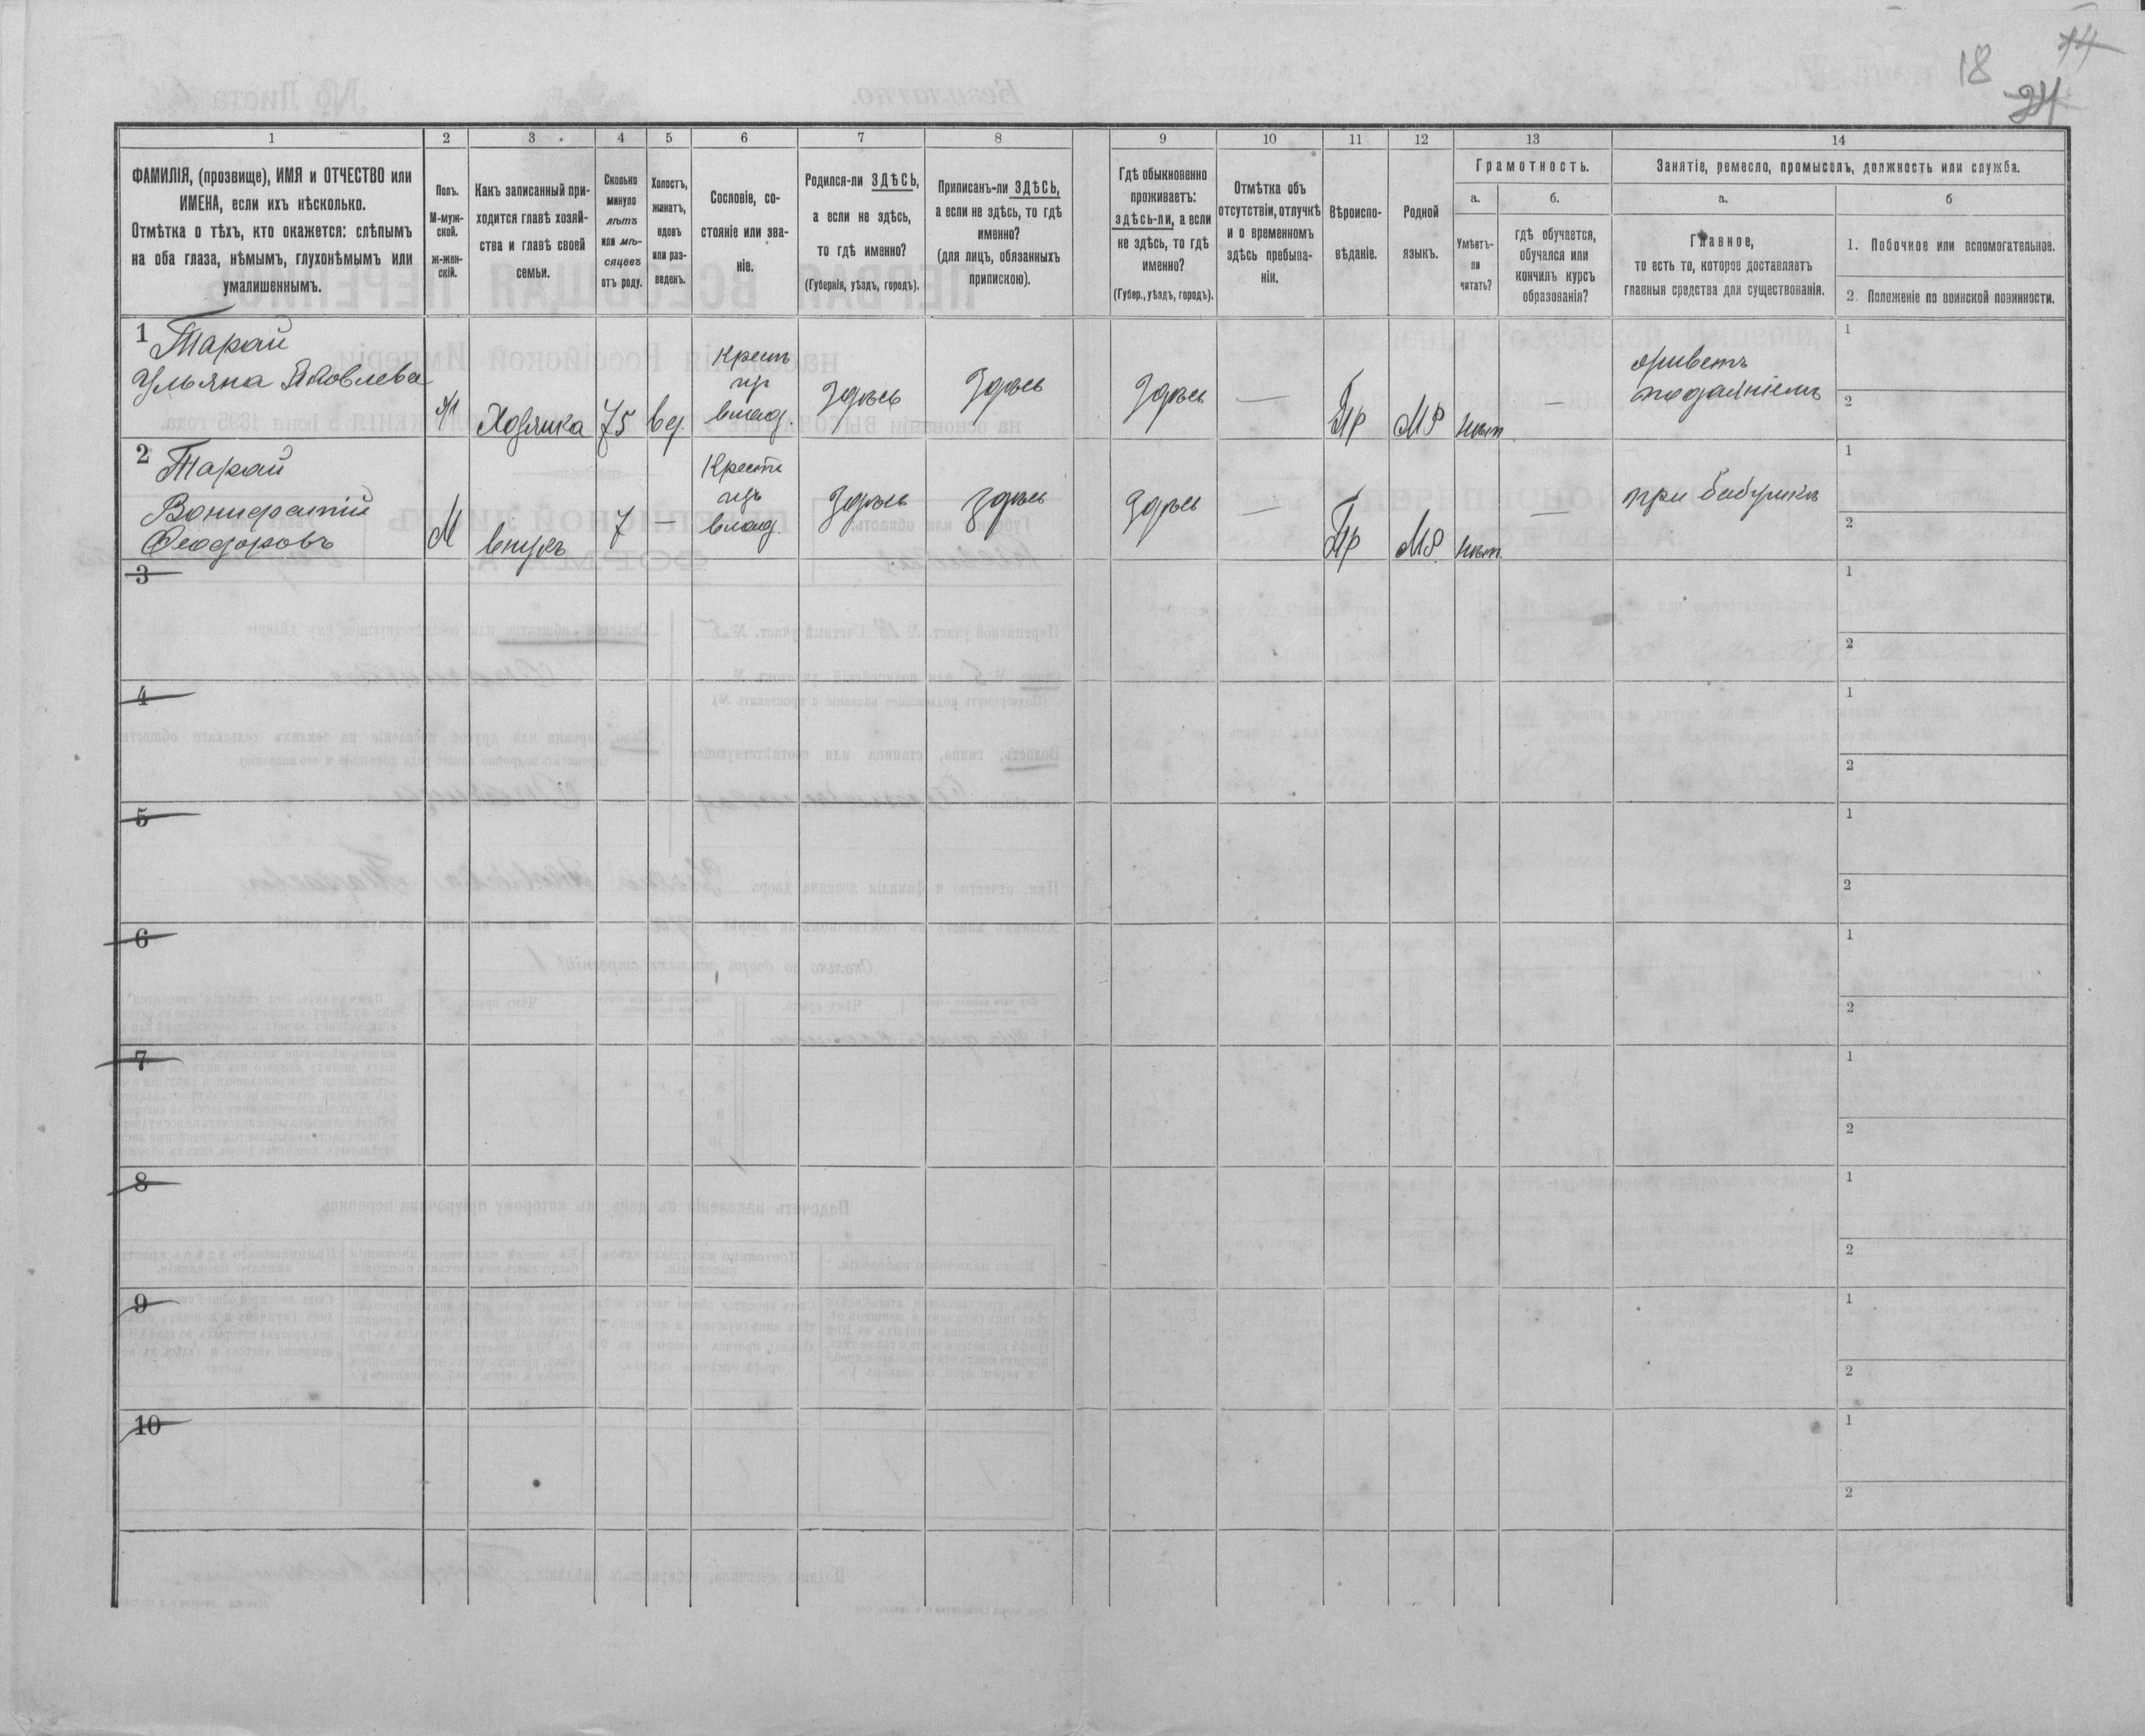 18
14
24
1 2 3 4 5 6 7 8 9 10 11 12 13 14
ФАМИЛІЯ, (прозвище), ИМЯ и ОТЧЕСТВО или
ИМЕНА, если ихъ нѣсколько.
Отмѣтка о тѣхъ, кто окажется: слѣпымъ
на оба глаза, нѣмымъ, глухонѣмымъ или
умалишеннымъ.
Полъ.
М-муж-
ской.
ж-жен-
скій.
Какъ записанный при-
ходится главѣ хозяй-
ства и главѣ своей
семьи.
Сколько
минуло
лѣтъ
или мѣ-
сяцевъ
отъ роду.
Холостъ,
женатъ,
вдовъ
или раз-
веденъ.
Сословіе, со-
стояніе или зва-
ніе.
Родился-ли ЗДѢСЬ,
а если не здѣсь,
то гдѣ именно?
(Губернія, уѣздъ, городъ).
Приписанъ-ли ЗДѢСЬ,
а если не здѣсь, то гдѣ
именно?
(для лицъ, обязанныхъ
припискою).
Гдѣ обыкновенно
проживаетъ:
здѣсь-ли, а если
не здѣсь, то гдѣ
именно?
(Губер., уѣздъ, городъ).
Отмѣтка объ
отсутствіи, отлучкѣ
и о временномъ
здѣсь пребыва-
ніи.
Вѣроиспо-
вѣданіе.
Родной
языкъ.
Грамотность.
а.
Умѣетъ-
ли
читать?
б.
гдѣ обучается,
обучался или
кончилъ курсъ
образованія?
Занятіе, ремесло, промыселъ, должность или служба.
а.
Главное,
то есть то, которое доставляетъ
главныя средства для существованія.
б
1. Побочное или вспомогательное.
2. Положеніе по воинской повинности.
1 Тарай
Ульяна Яковлева
Хозяйка 75 вд.
Крест
влад.
Здѣсь Здѣсь Здѣсь — Пр МР нѣт —
живетъ
подаяніемъ
1
2
2 Тарай
Вонифатій
Феодоровъ
М внукъ 7 —
Крест
влад.
Здѣсь здѣсь здѣсь — Пр МР нѣт —
при бабушкѣ
1
2
3
1
2
4
1
2
5
1
2
6
1
2
7
1
2
8
1
2
9
1
2
10
1
2